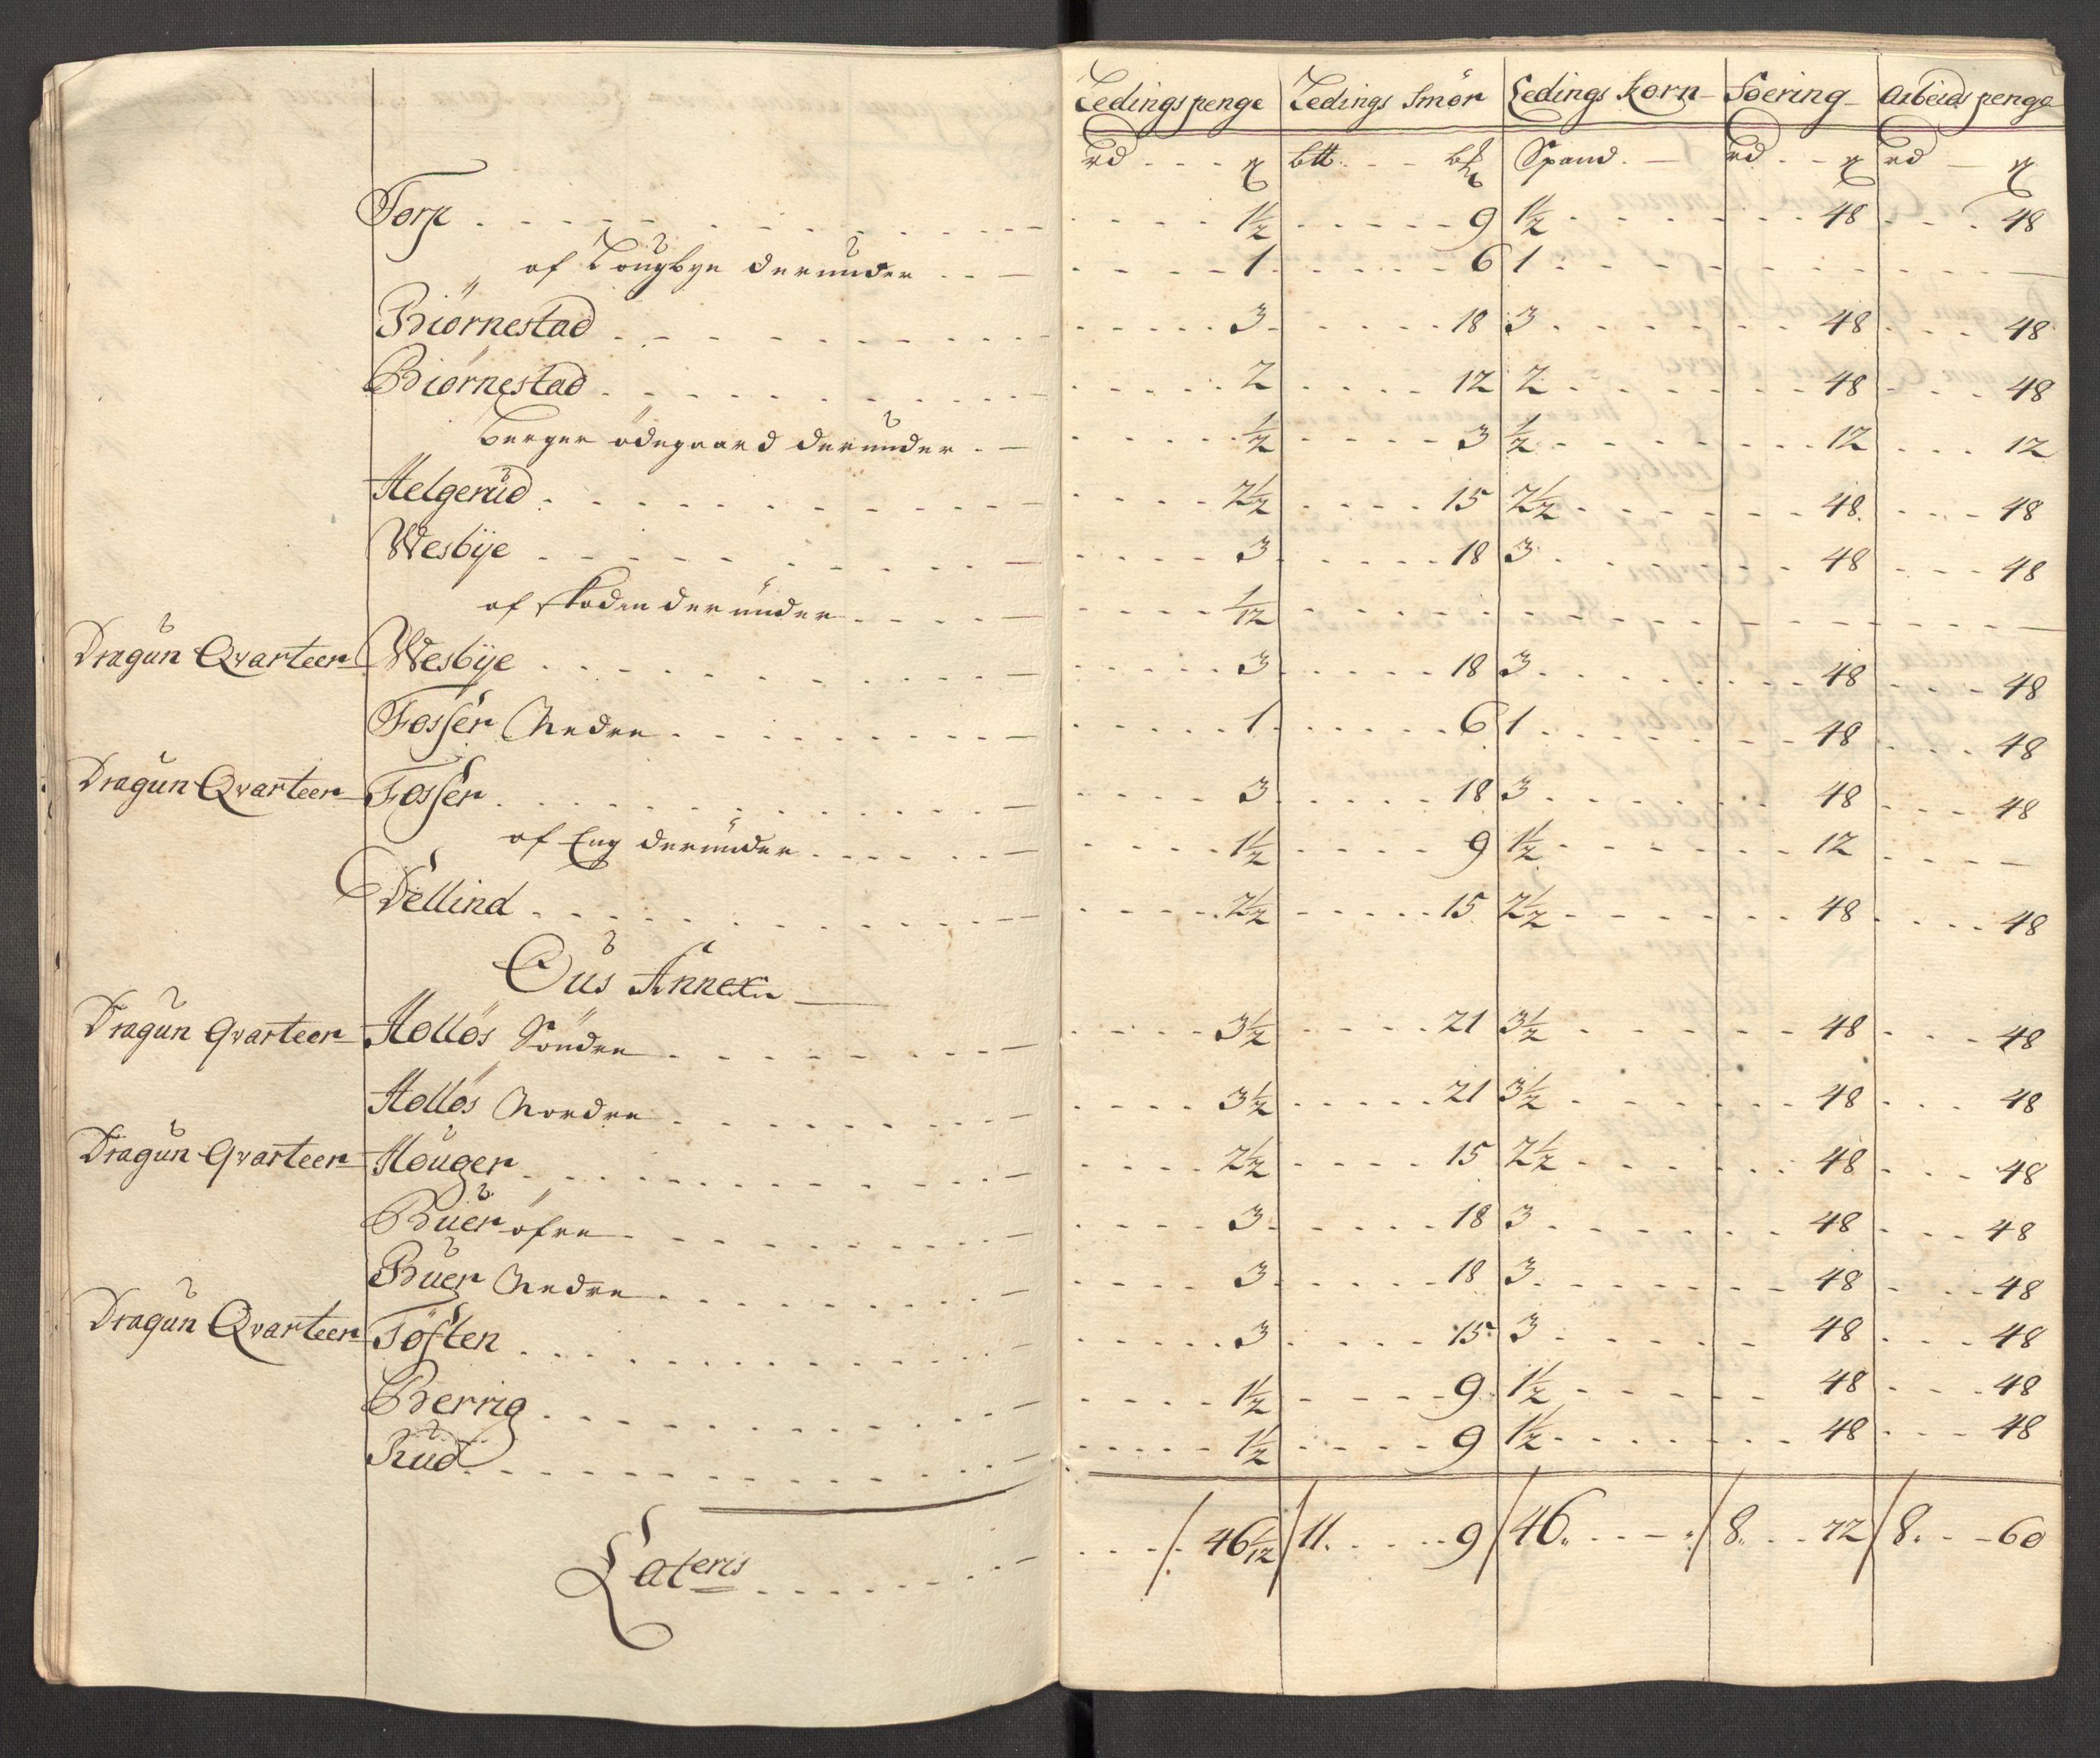 Ledingspenge Ledings Smör Ledings Korn Foering Arbeids penge
rd - - - ß btt. - - Spand. - rd - - ß rd - ß
Torp - - - 1½ - - - 9 1½ - - - 48 - - - 48
af Lougbye derunder - - - 1 - - - 6 1 - - -
Biörnestad - - - 3 - - - 18 3 - - - 48 - - - 48
Biörnestad - - - 2 - - - 12 2 - - - 48 - - - 48
Berger ödegaard derunder - - - ½ - - - 3 ½ - - - 12 - - - 12
Helgerud - - - 2½ - - - 15 2½ - - - 48 - - - 48
Wesbije - - - 3 - - - 18 3 - - - 48 - - - 48
af Skoden derunder - - - 1/12 - - -
Dragun Qvarteer Wesbije - - - 3 - - - 18 3 - - - 48 - - - 48
Fosser Nedre - - - 1 - - - 6 1 - - - 48 - - - 48
Dragun Qvarteer Fosser - - - 3 - - - 18 3 - - - 48 - - - 48
af Eng derunder - - - 1½ - - - 9 1½ - - - 12 - - -
Dellind - - - 2½ - - - 15 2½ - - - 48 - - - 48
Ous Annex
Dragun Qvarteer Hollös Söndre - - - 3½ - - - 21 3½ - - - 48 - - - 48
Hollös Nordre - - - 3½ - - - 21 3½ - - - 48 - - - 48
Dragun Qvarteer Houger - - - 2½ - - - 15 2½ - - - 48 - - - 48
Buer öfre - - - 3 - - - 18 3 - - - 48 - - - 48
Buer Nedre - - - 3 - - - 18 3 - - - 48 - - - 48
Dragun Qvarteer Töften - - - 3 - - - 15 3 - - - 48 - - - 48
Berrig - - - 1½ - - - 9 1½ - - - 48 - - - 48
Rud - - - 1½ - - - 9 1½ - - - 48 - - - 48
Lateris - - - 46 1/12 11. - - - 9 46. - - - 8. - - 72 8. - - 60